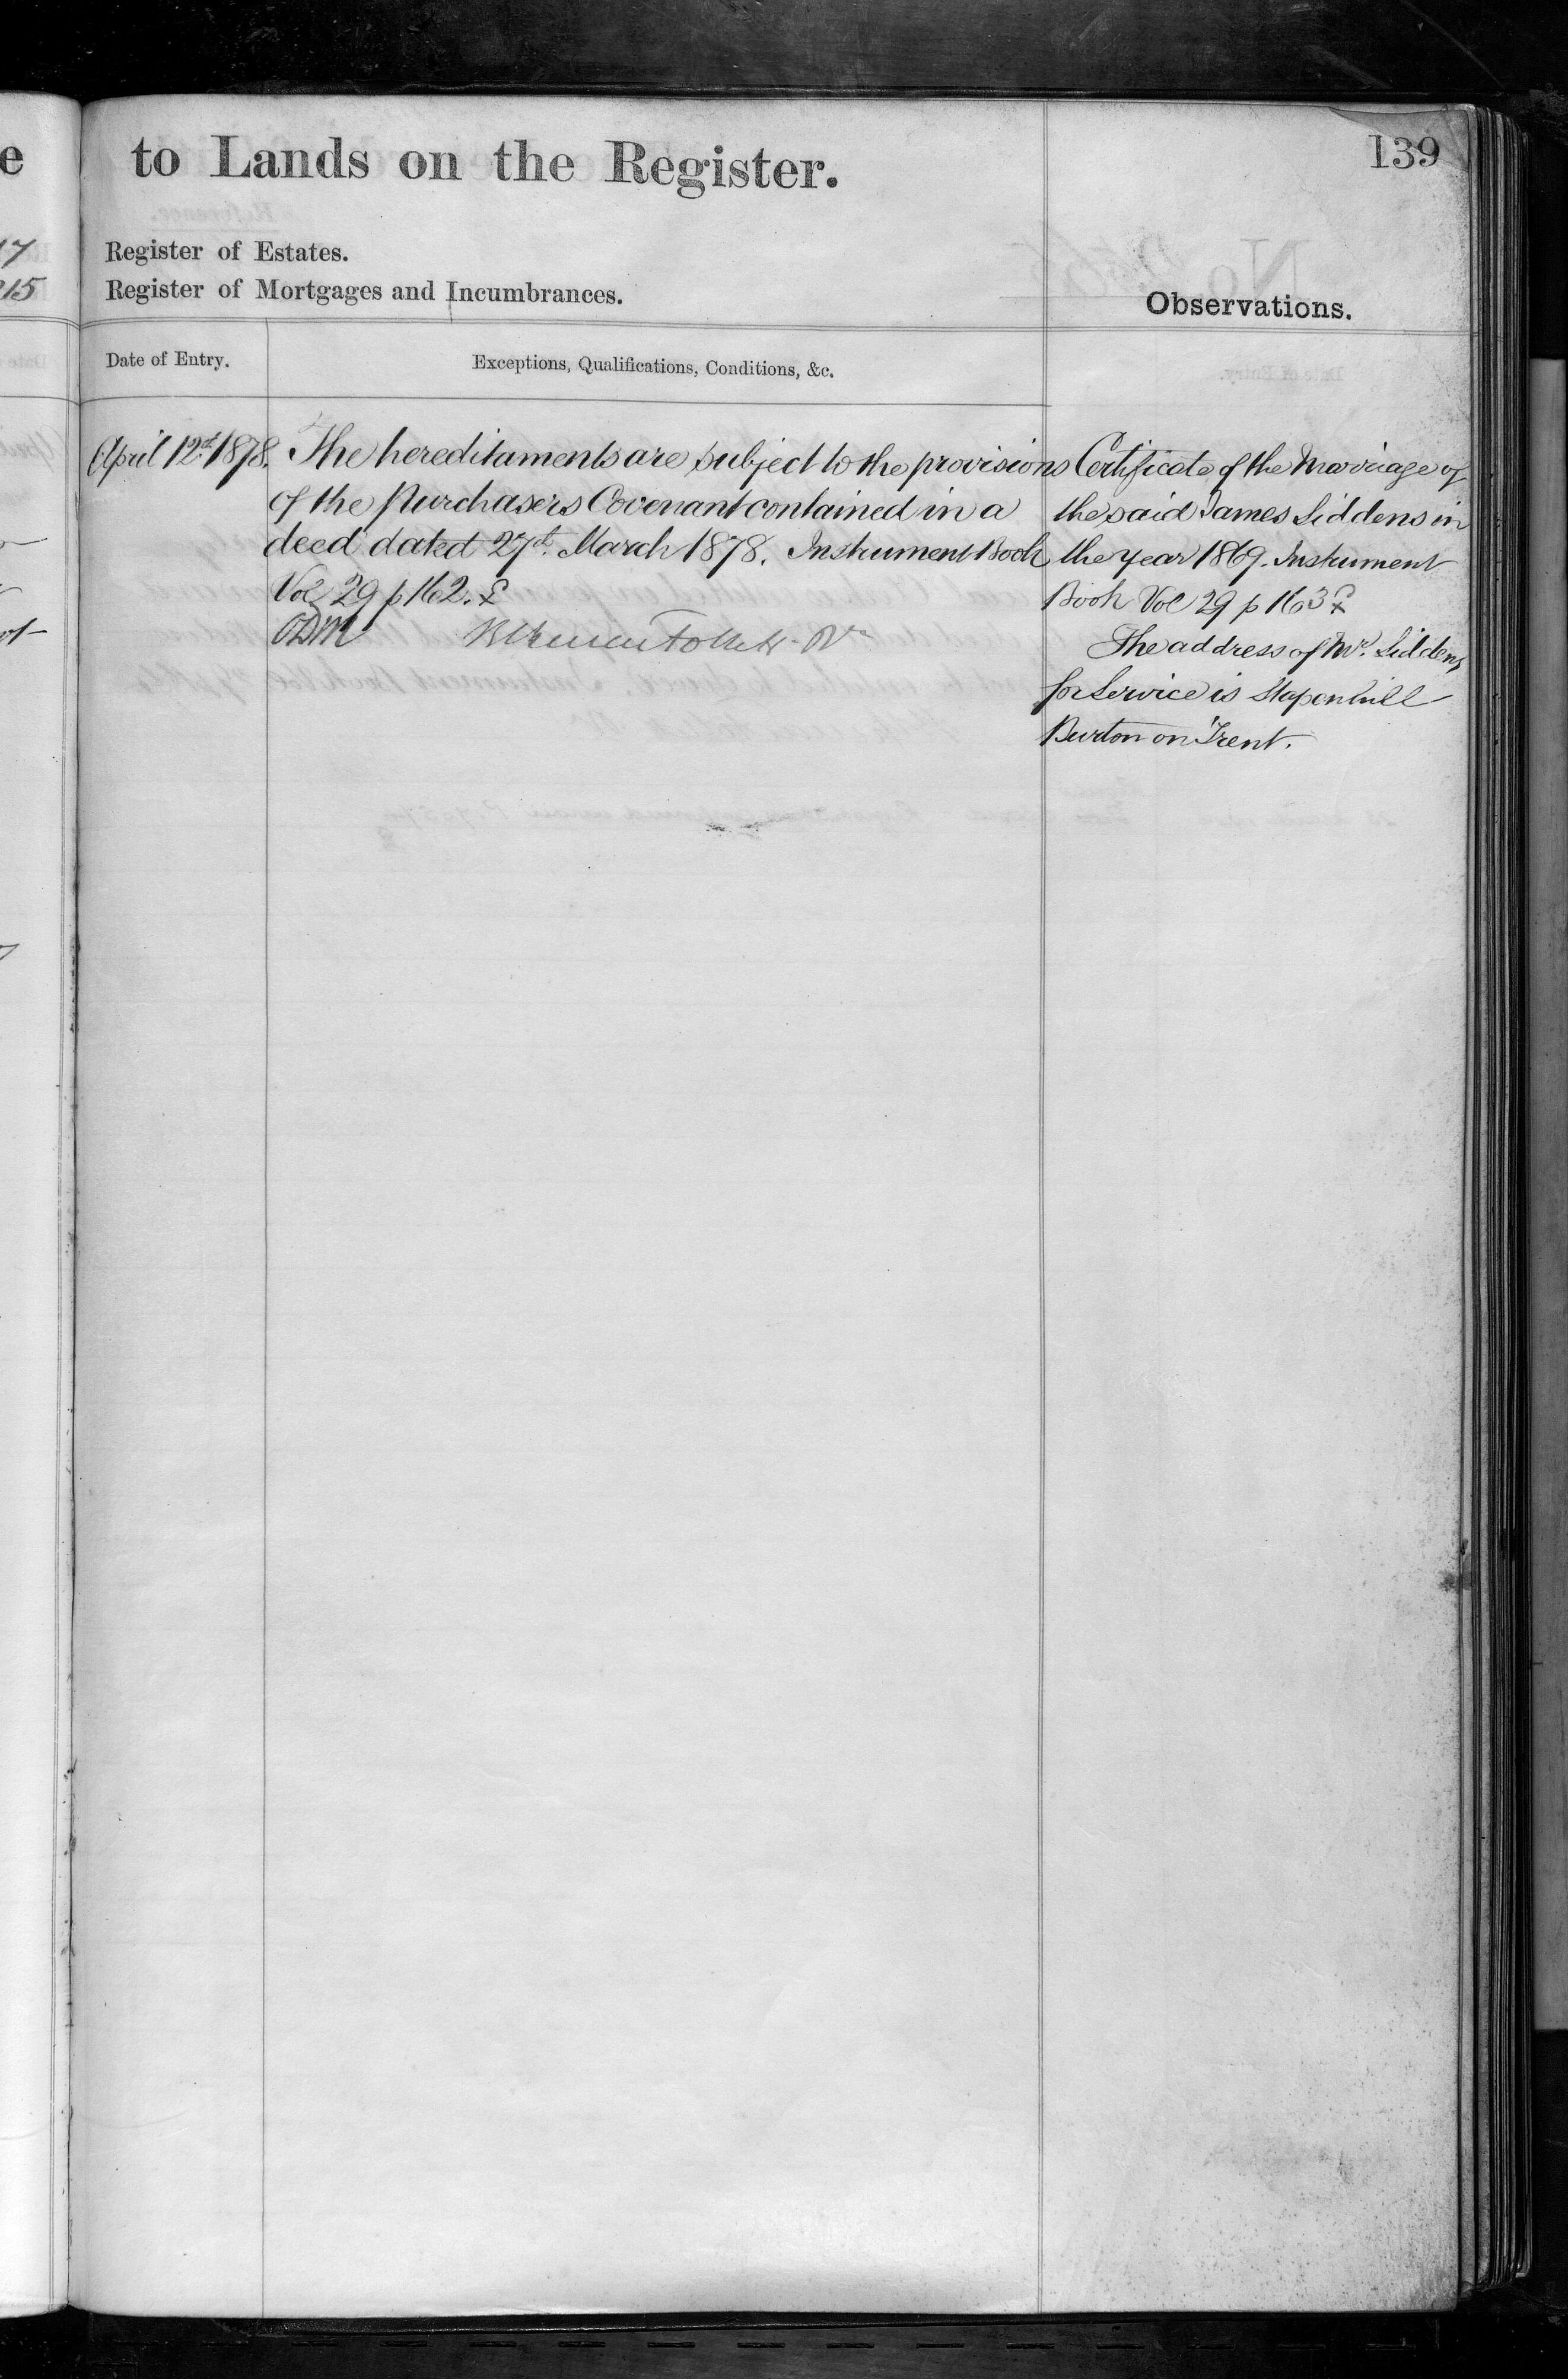 to Lands on the Register.
139
Register of Estates.
Register of Mortgages and Incumbrances.
Observations.
Date of Entry.
Exceptions, Qualifications, Conditions, &c.
April 12th 1878.
The hereditaments are subject to the provisions
of the Purchasers Covenant contained in a
deed dated 27th March 1878. Instrument Book
Vol 29 p 162.
Certificate of the Marriage of
the said James Siddens in
the year 1869. Instrument
Book Vol 29 p 163
The address of Mr. Siddens
for Service is Stapenhill
Burton on Trent.
17
215